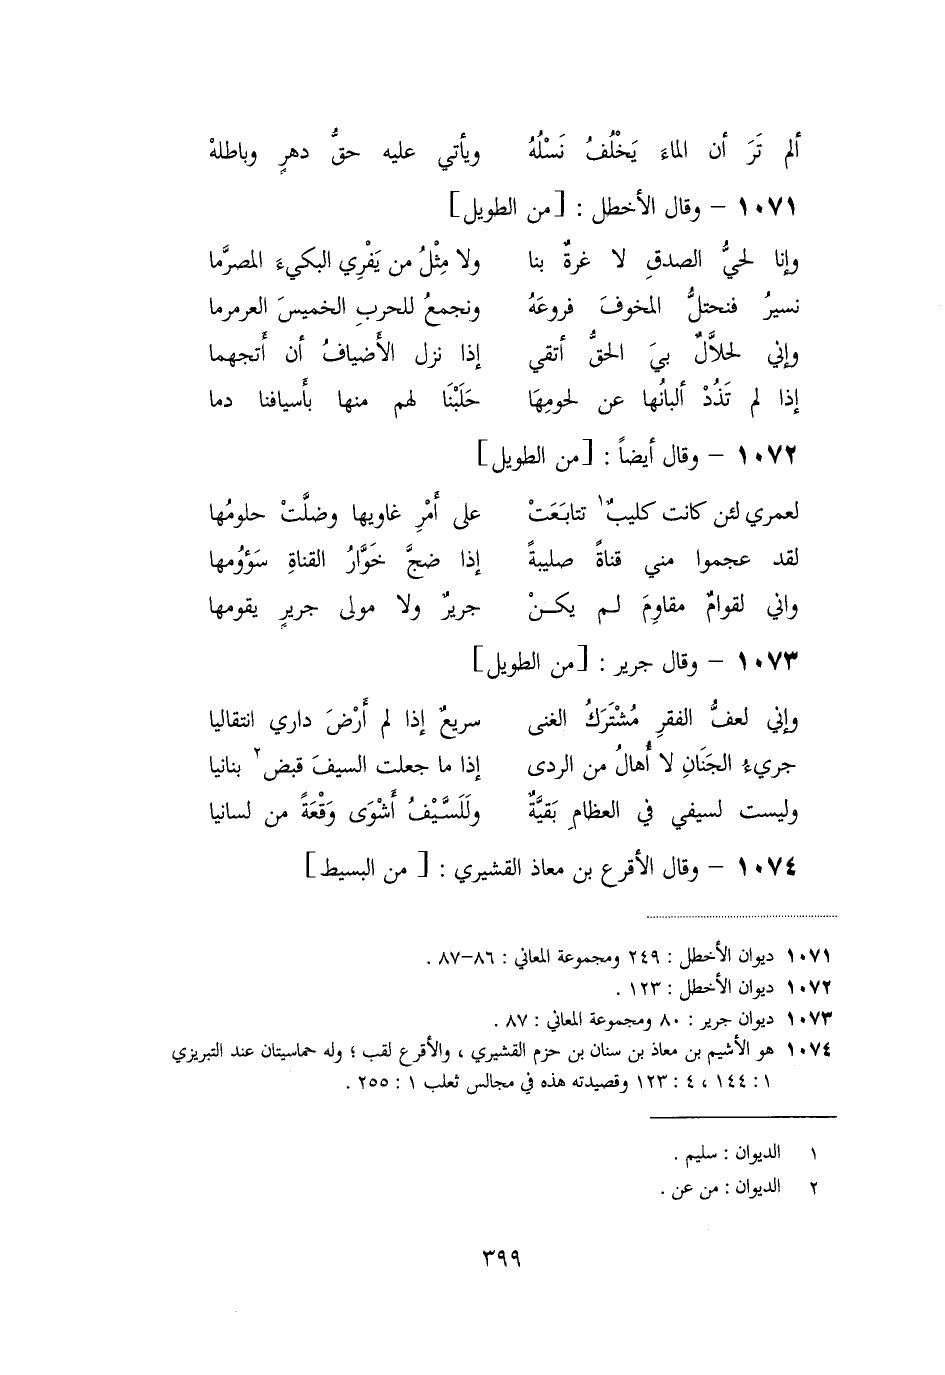 ألم تَرَ أن الماءَ يَخْلُفُ نَسْلُهُ ويأتي عليه حقُّ دهرٍ وباطلهْ
١٠٧١ – وقال الأخطل : [من الطويل]
وإنا لحيُّ الصدقِ لا غرةٌ بنا ولا مِثْلُ من يَفْرِي البكيءَ المصرَّما
نسيرُ فنحتلُّ المخوفَ فروعَهُ ونجمعُ للحربِ الخميسَ العرمرما
وإني لحلاَّلٌ بيَ الحقُّ أتقي إذا نزل الأَضيافُ أن أَتجهما
إذا لم تَذُدْ ألبانُها عن لحومِهَا حَلَبْنَا لهم منها بأَسيافنا دما
١٠٧٢ – وقال أيضاً : [من الطويل]
لعمري لئن كانت كليبٌ١ تتابَعَتْ على أَمْرِ غاويها وضلَّتْ حلومُها
لقد عجموا مني قناةً صليبةً إذا ضجَّ خَوَّارُ القناةِ سَؤُومُها
واني لقوامٌ مقاوِمَ لم يكنْ جريرٌ ولا مولى جريرٍ يقومها
١٠٧٣ – وقال جرير : [من الطويل]
وإني لعفُّ الفقرِ مُشْتَرَكُ الغنى سريعٌ إذا لم أَرْضَ داري انتقاليا
جريءُ الجَنَانِ لا أُهالُ من الردى إذا ما جعلت السيفَ قبض٢ بنانيا
وليست لسيفي في العظامِ بَقيَّةٌ وللَسَّيْفُ أَشْوَى وَقْعَةً من لسانيا
١٠٧٤ – وقال الأقرع بن معاذ القشيري : [ من البسيط]
١٠٧١ ديوان الأخطل : ٢٤٩ ومجموعة المعاني : ٨٦–٨٧ .
١٠٧٢ ديوان الأخطل : ١٢٣ .
١٠٧٣ ديوان جرير : ٨٠ ومجموعة المعاني : ٨٧ .
١٠٧٤ هو الأشيم بن معاذ بن سنان بن حزم القشيري ، والأقرع لقب ؛ وله حماسيتان عند التبريزي
١ : ١٤٤ ، ٤ : ١٢٣ وقصيدته هذه في مجالس ثعلب ١ : ٢٥٥ .
١ الديوان : سليم .
٢ الديوان : من عن .
٣٩٩